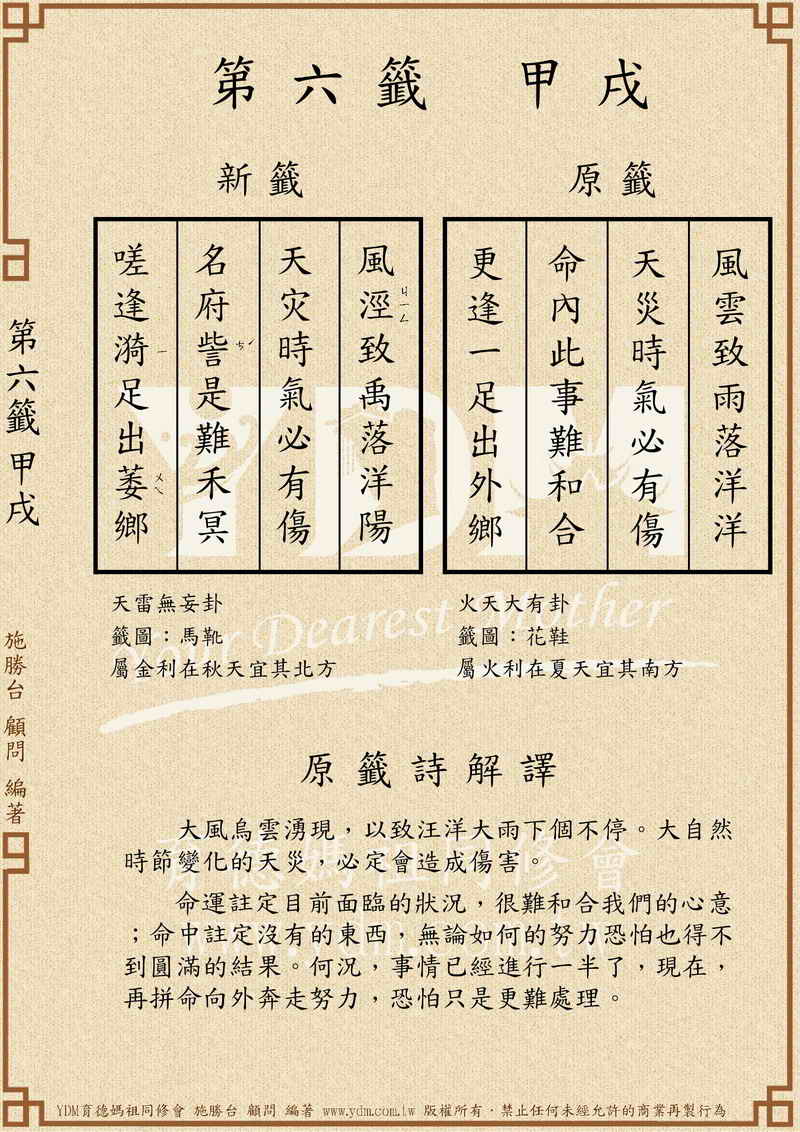 第六籤 甲戌
原籤
風雲致雨落洋洋
天災時氣必有傷
命內此事難和合
更逢一足出外鄉
火天大有卦
籤圖：花鞋
屬火利在夏天宜其南方
新籤
風涇ㄐㄧㄥ致禹落洋陽
天灾時氣必有傷
名府訾ㄘˊ是難禾冥
嗟逢漪ㄧ足出萎ㄨㄟ鄉
天雷無妄卦
籤圖：馬靴
屬金利在秋天宜其北方
原籤詩解譯
大風烏雲湧現，以致汪洋大雨下個不停。大自然
時節變化的天災，必定會造成傷害。
命運註定目前面臨的狀況，很難和合我們的心意
；命中註定沒有的東西，無論如何的努力恐怕也得不
到圓滿的結果。何況，事情已經進行一半了，現在，
再拼命向外奔走努力，恐怕只是更難處理。
第六籤 甲戌
施勝台 顧問 編著
YDM
Your Dearest Mother
育德媽祖同修會
YDM育德媽祖同修會 施勝台 顧問 編著 www.ydm.com.tw 版權所有．禁止任何未經允許的商業再製行為